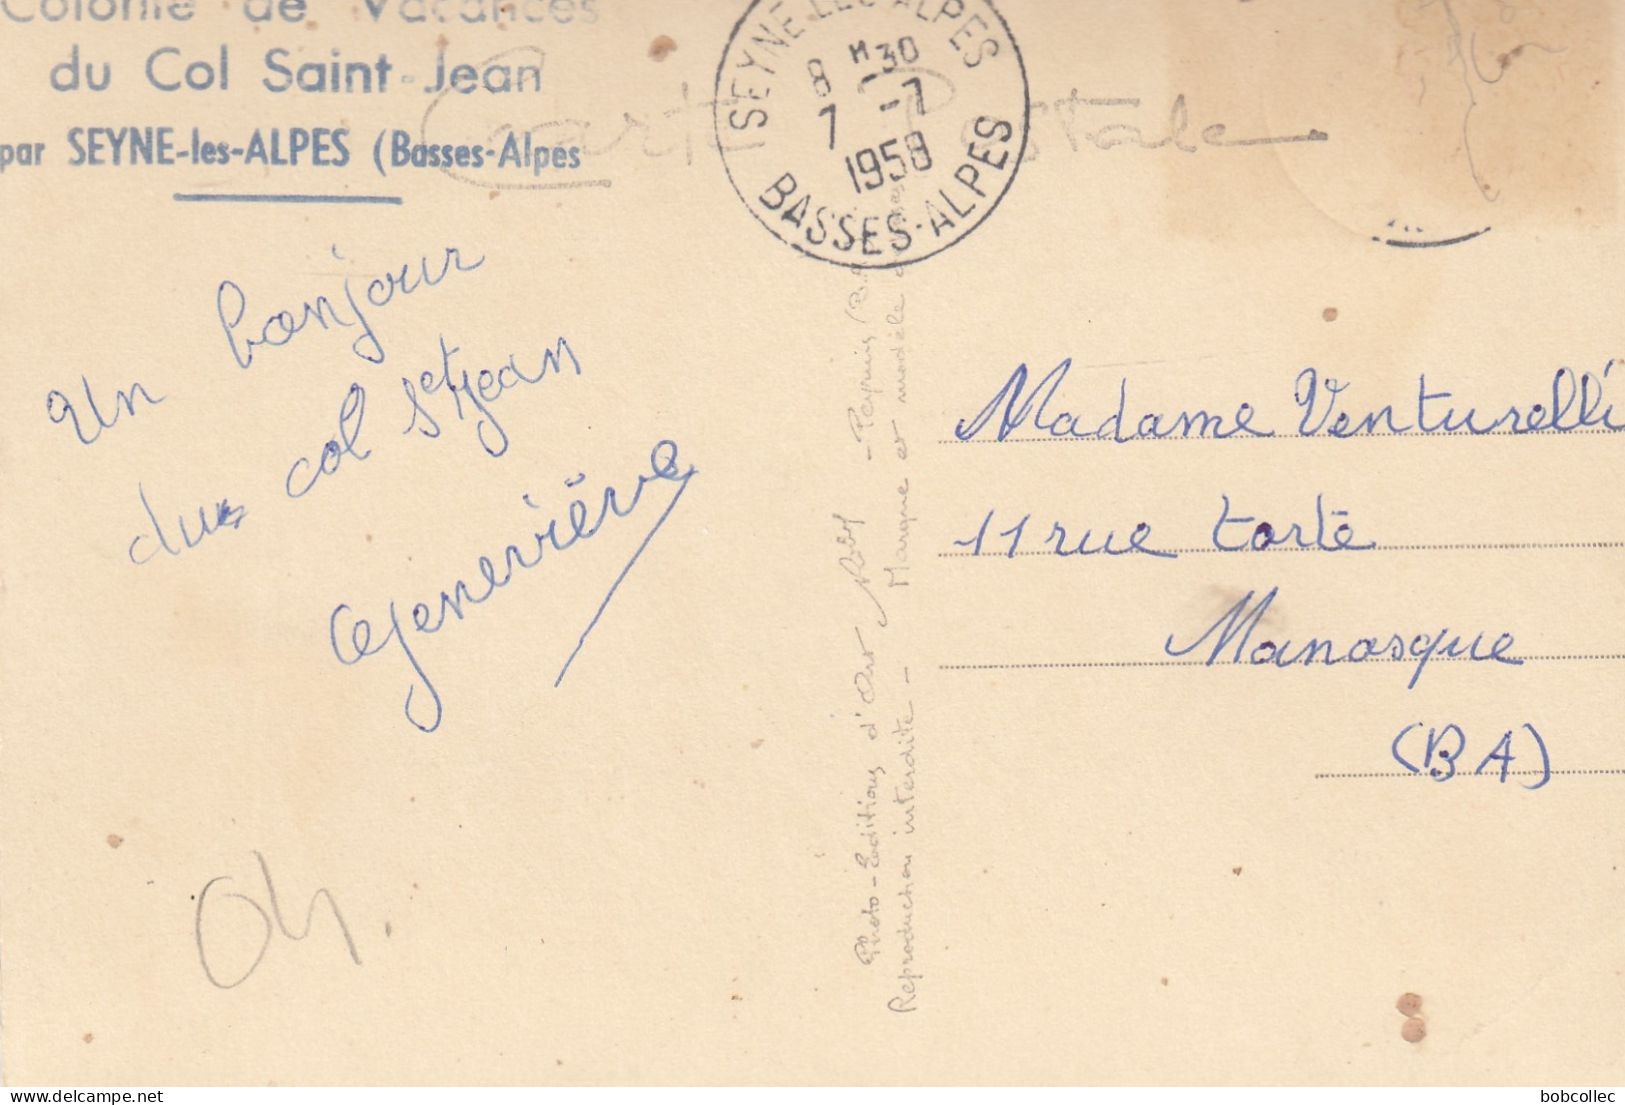 Colonie de Vacances
du Col Saint-Jean
par SEYNE-les-ALPES (Basses-Alpes
Carte Postale
SEYNE-LES-ALPES
8 H 30
7 -7
1958
BASSES-ALPES
Un bonjour
du col St Jean
Geneviève
04.
Photo-Editions d'Art - Peypin
Reproduction interdite - Marque et modèle
Madame Venturelli
11 rue torte
Manosque
(BA)
bobcollec